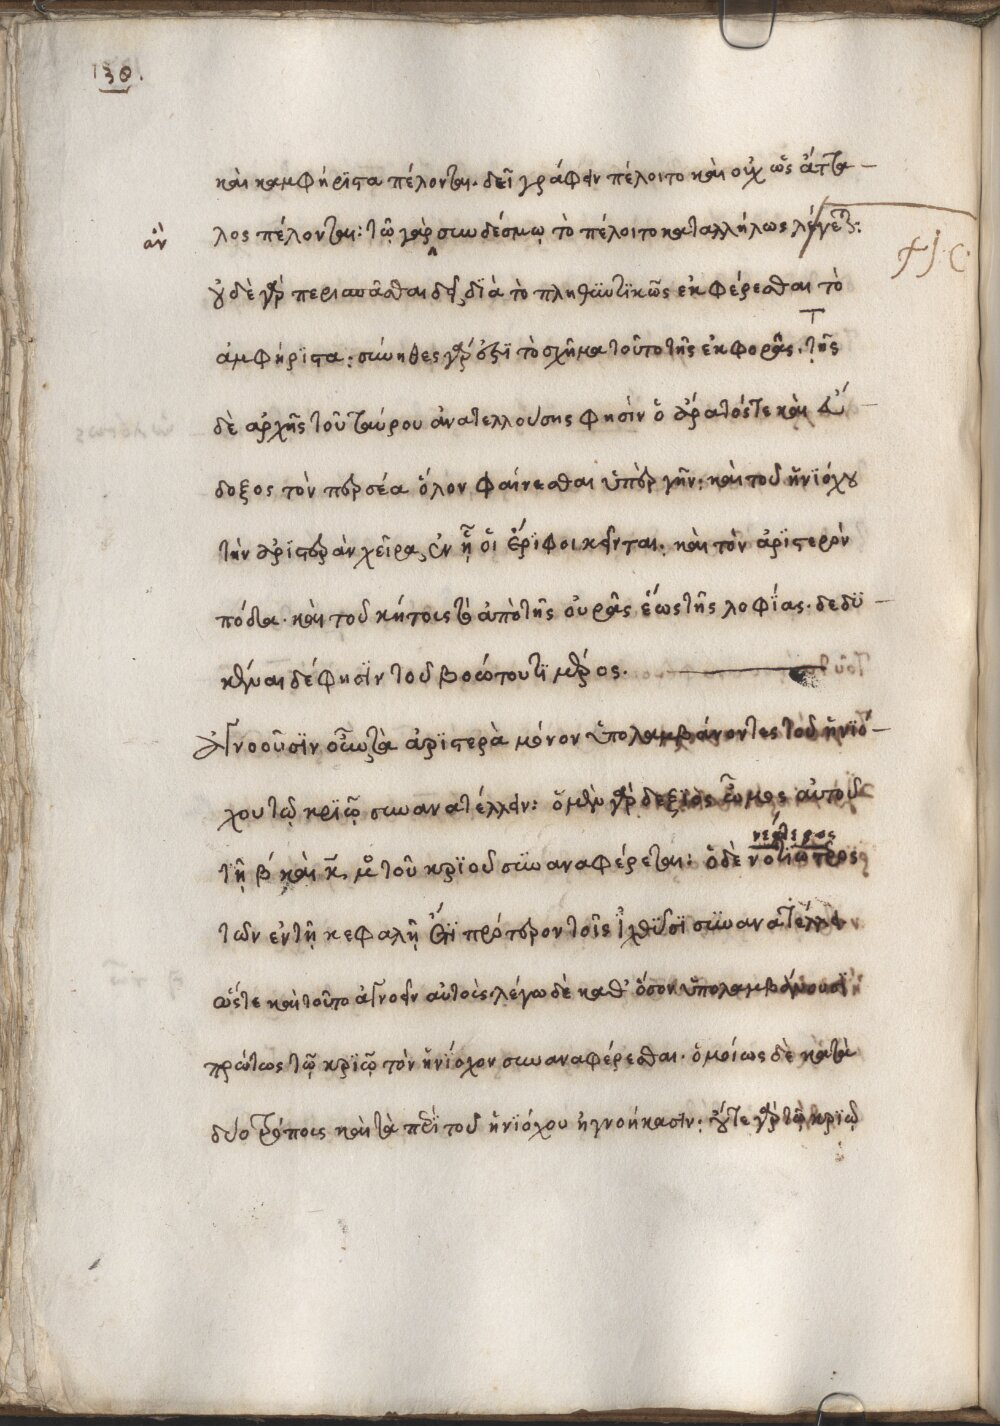 130.
καὶ καμφήριστα πέλονται. δεῖ γράφειν πέλοιτο καὶ οὐχ ὡς ἄττα
λος πέλονται: τῷ γὰρ συνδέσμῳ τὸ πέλοιτο καταλλήλως λέγετ:
ἂν
οὐδὲ γὰρ περισπᾶσθαι δεῖ, διὰ τὸ πληθυντικῶς ἐκφέρεσθαι τὸ
ἀμφήριστα: σύνηθες γάρ ἐστι τὸ σχῆμα τοῦτο τῆς ἐκφορᾶς. τῆς
δὲ ἀρχῆς τοῦ ταύρου ἀνατελλούσης φησὶν ὁ ἄρατός τε καὶ εὔ
δοξος τὸν περσέα ὅλον φαίνεσθαι ὑπὲρ γῆν: καὶ τοῦ ἡνιόχου
τὴν ἀριστερὰν χεῖρα, ἐν ᾗ οἱ ἔριφοι κεῖνται: καὶ τὸν ἀριστερὸν
πόδα. καὶ τοῦ κήτους τὰ ἀπὸ τῆς οὐρᾶς ἕως τῆς λοφίας. δεδυ
κέναι δέ φησιν τοῦ βοώτου τι μέρος.
Ἀγνοοῦσιν οὖν τὰ ἀριστερὰ μόνον ὑπολαμβάνοντες τοῦ ἡνιό
χου τῷ κριῷ συνανατέλλειν: ὁ μὲν γὰρ δεξιὸς ὦμος αὐτοῦ
τῇ β καὶ κ μ τοῦ κριοῦ συναναφέρεται: ὁ δὲ νοτιώτερος
τῶν ἐν τῇ κεφαλῇ ἔτι πρότερον τοῖς ἰχθύσι συνανατέλλει
ὥστε καὶ τοῦτο ἀγνοεῖν αὐτούς. λέγω δὲ καθ' ὅσον ὑπολαμβάνουσι
πρώτως τῷ κριῷ τὸν ἡνίοχον συναναφέρεσθαι. ὁμοίως δὲ κατὰ
δύο τρόπους καὶ τὰ περὶ τοῦ ἡνιόχου ἠγνοήκασιν: οὔτε γὰρ τῷ κριῷ